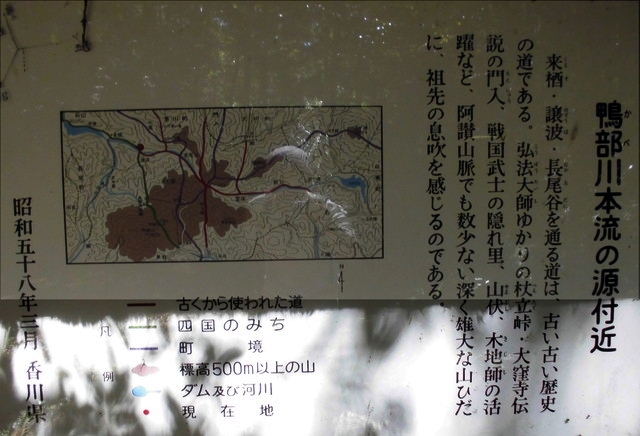 鴨部川本流の源付近
来栖・譲波・長尾谷を通る道は、古い古い歴史
の道である。弘法大師ゆかりの杖立峠・大窪寺伝
説の門入、戦国武士の隠れ里、山伏、木地師の活
躍など、阿讃山脈でも数少ない深く雄大な山ひだ
に、祖先の息吹を感じるのである。
凡例
古くから使われた道
四国のみち
町境
標高500m以上の山
ダム及び河川
現在地
昭和五十八年三月 香川県